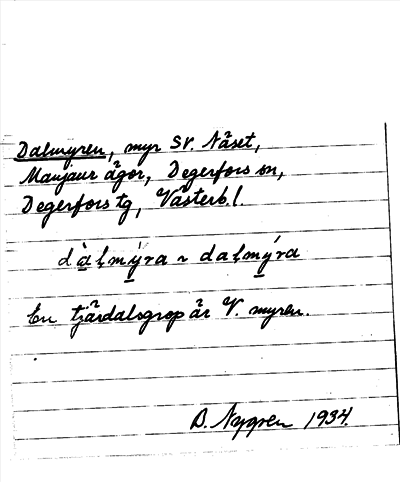 Dalmyren, myr SV. Näset,
Manjaur ägor, Degerfors sn,
Degerfors tg, Västerb. l.
dàl̥mýra ~ dal̥mýra
En tjärdalsgrop är V. myren.
B. Nygren 1934.